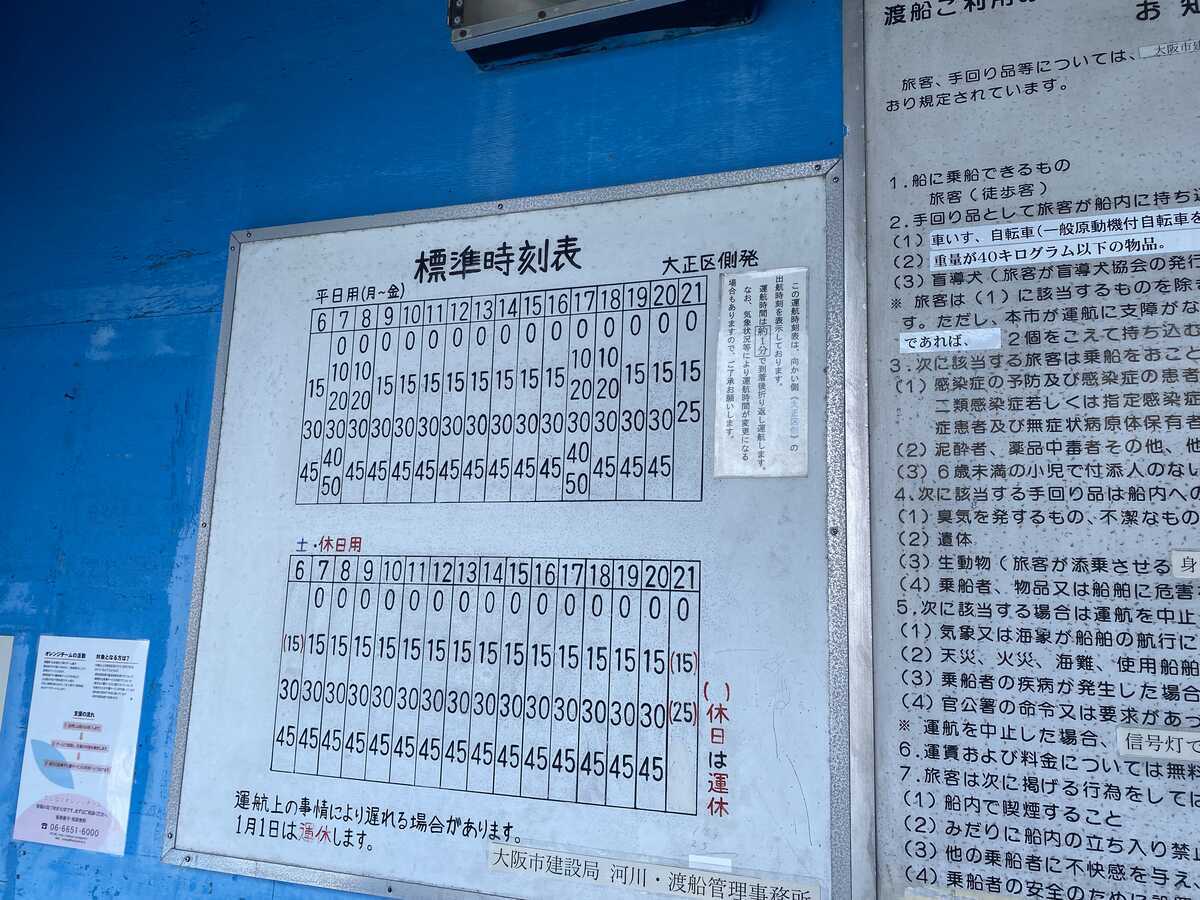 標準時刻表
大正区側発
平日用(月~金)
6 7 8 9 10 11 12 13 14 15 16 17 18 19 20 21
0 0 0 0 0 0 0 0 0 0 0 0 0 0 0
15 10 10 15 15 15 15 15 15 15 15 10 10 15 15 15
20 20 20 20
30 30 30 30 30 30 30 30 30 30 30 30 30 30 30 25
45 40 45 45 45 45 45 45 45 45 45 40 45 45 45
50 50
この運航時刻表は、向かい側(大正区側)の
出航時刻を表示しております。
運航時間は約1分で到着後折り返し運航します。
なお、気象状況等により運航時間が変更になる
場合もありますので、ご了承お願いします。
土・休日用
6 7 8 9 10 11 12 13 14 15 16 17 18 19 20 21
0 0 0 0 0 0 0 0 0 0 0 0 0 0 0
(15) 15 15 15 15 15 15 15 15 15 15 15 15 15 15 (15)
30 30 30 30 30 30 30 30 30 30 30 30 30 30 30 (25)
45 45 45 45 45 45 45 45 45 45 45 45 45 45 45
( )休日は運休
運航上の事情により遅れる場合があります。
1月1日は運休します。
大阪市建設局 河川・渡船管理事務所
渡船ご利用
お知
旅客、手回り品等については、大阪市建
おり規定されています。
1.船に乗船できるもの
旅客(徒歩客)
2.手回り品として旅客が船内に持ち込
(1)車いす、自転車(一般原動機付自転車を
(2)重量が40キログラム以下の物品。
(3)盲導犬(旅客が盲導犬協会の発行
※ 旅客は(1)に該当するものを除き
す。ただし、本市が運航に支障がな
であれば、 2個をこえて持ち込む
3.次に該当する旅客は乗船をおこと
(1)感染症の予防及び感染症の患者
二類感染症若しくは指定感染症
症患者及び無症状病原体保有者
(2)泥酔者、薬品中毒者その他、他
(3)6歳未満の小児で付添人のない
4.次に該当する手回り品は船内への
(1)臭気を発するもの、不潔なもの
(2)遺体
(3)生動物(旅客が添乗させる 身
(4)乗船者、物品又は船舶に危害
5.次に該当する場合は運航を中止
(1)気象又は海象が船舶の航行に
(2)天災、火災、海難、使用船舶
(3)乗船者の疾病が発生した場合
(4)官公署の命令又は要求があっ
※ 運航を中止した場合、信号灯で
6.運賃および料金については無料
7.旅客は次に掲げる行為をしては
(1)船内で喫煙すること
(2)みだりに船内の立ち入り禁止
(3)他の乗船者に不快感を与え
(4)乗船者の安全のために設置
オレンジチームの活動
対象となる方は?
支援の流れ
☎ 06-6651-6000